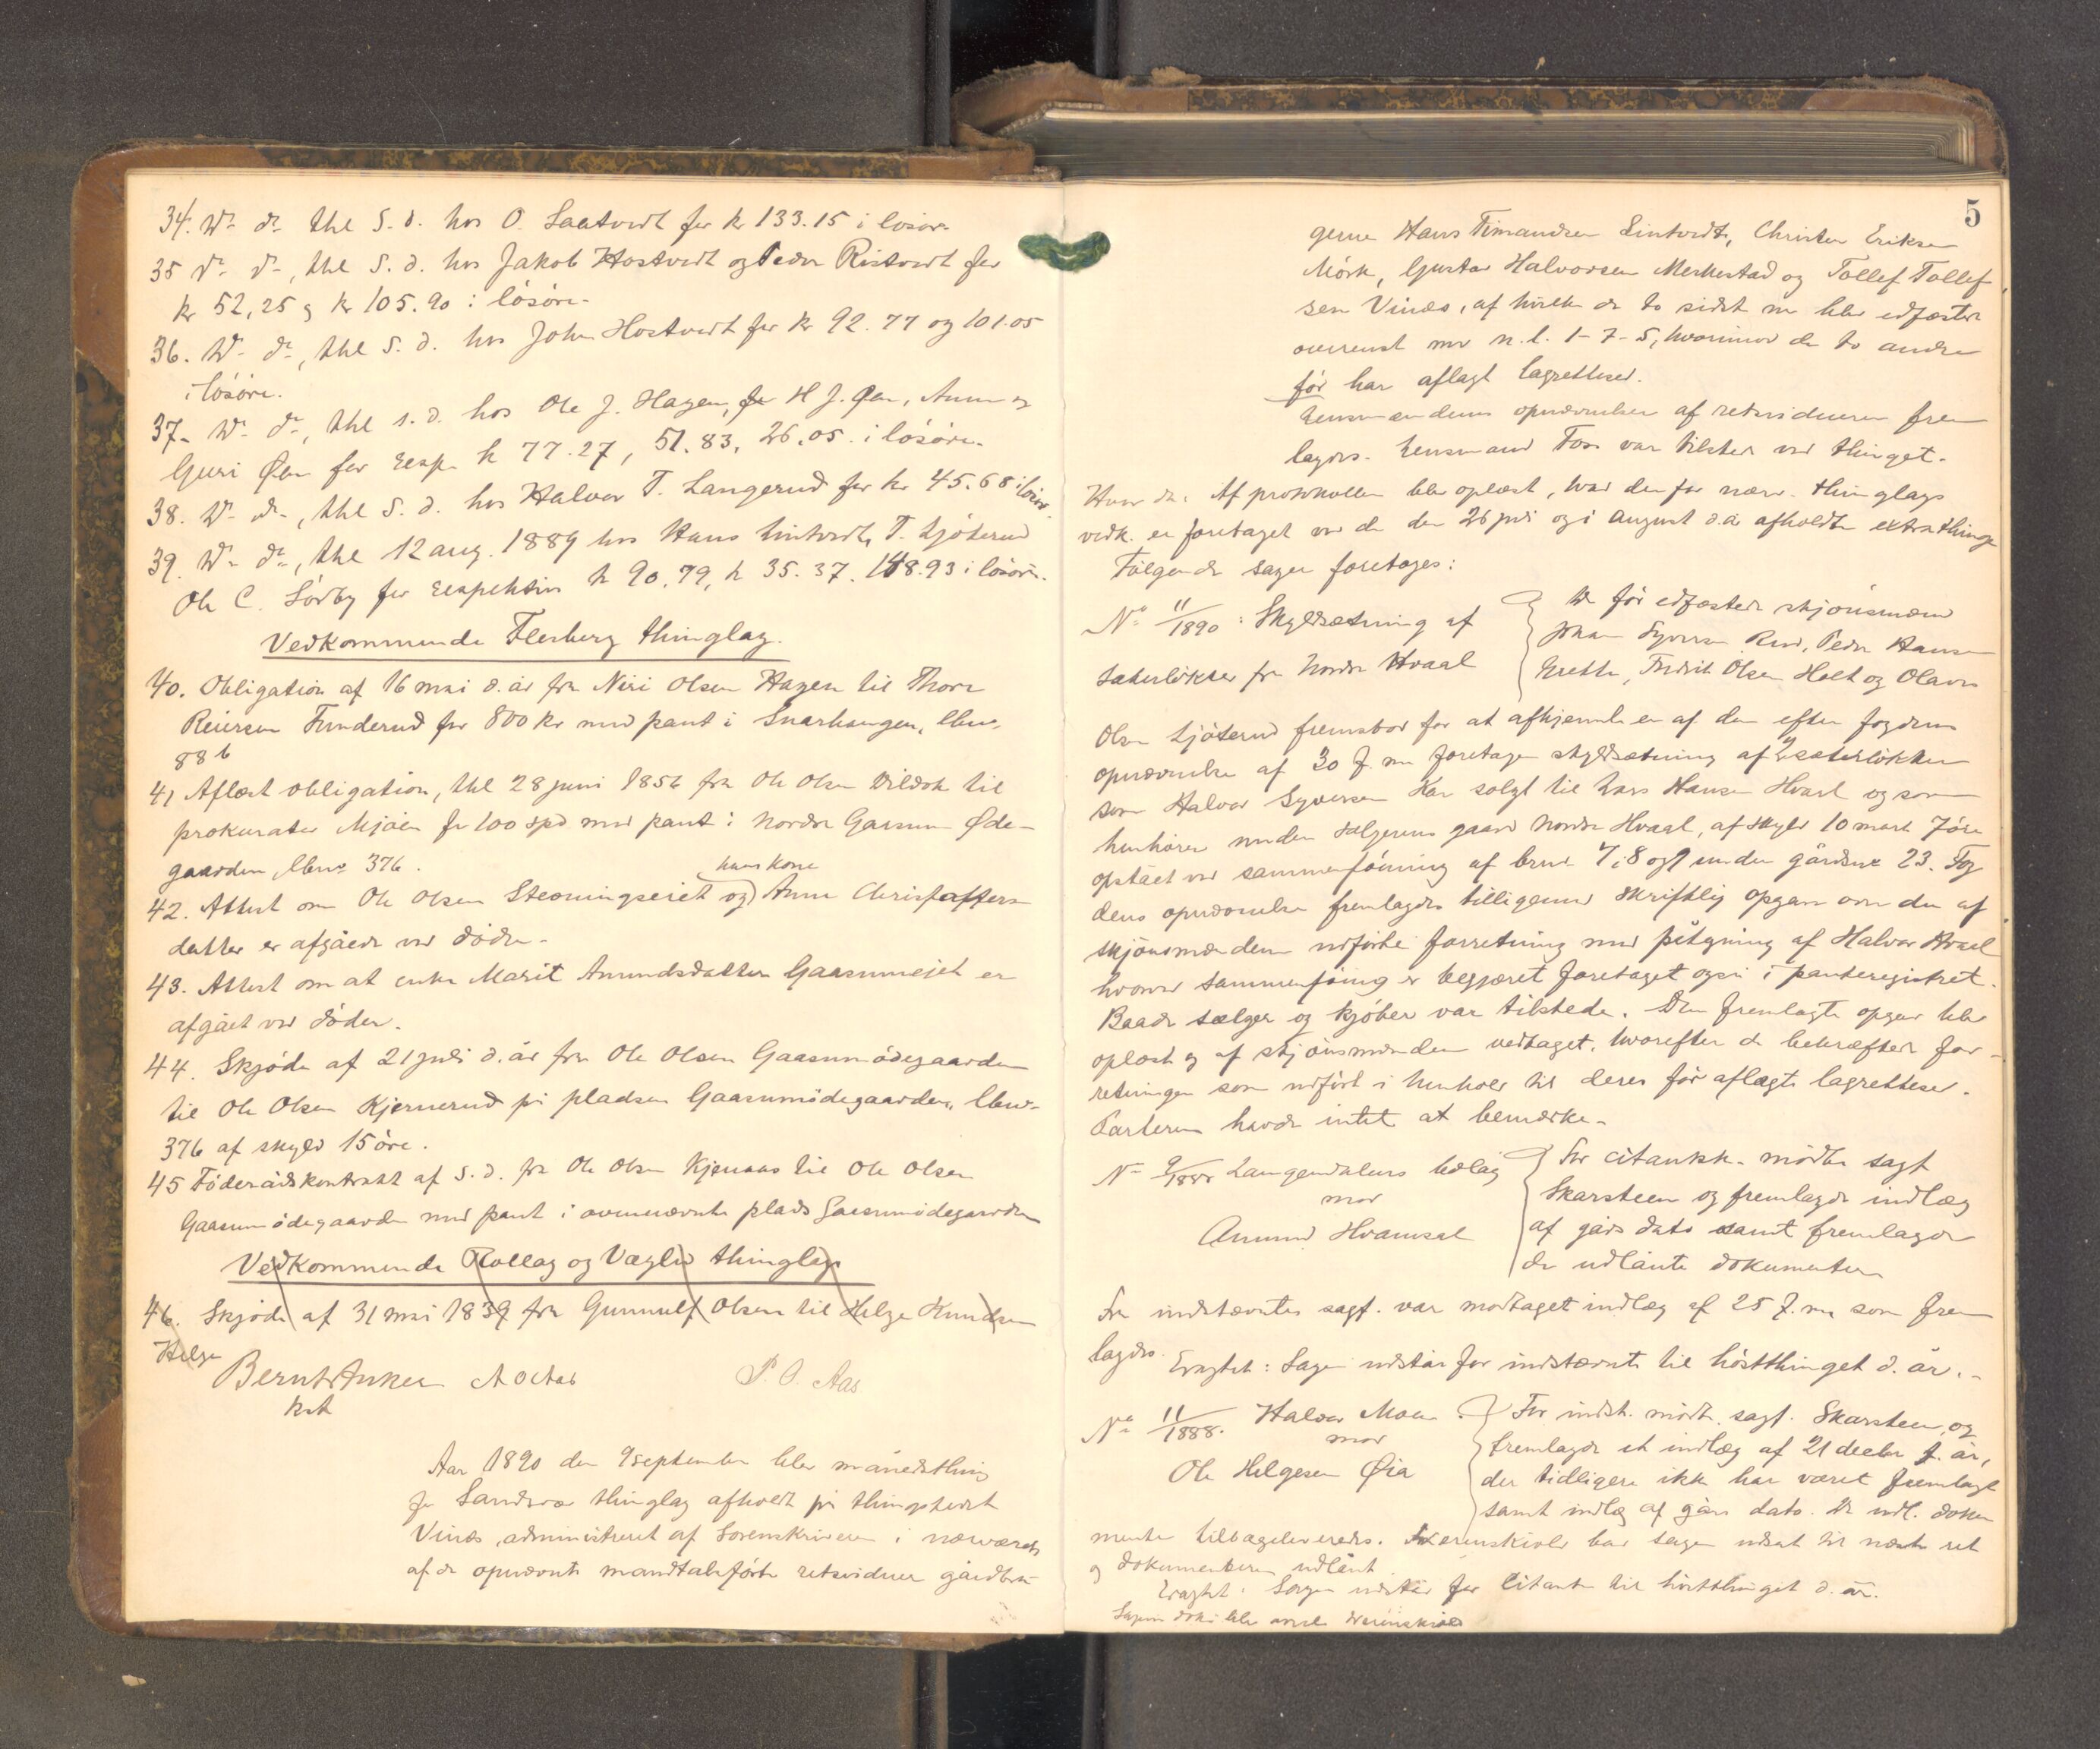 34. Do do thl s. d. hos O. Saatvedt for kr 133.15 i løsøre
35 do do, thl s. d. hos Jakob Hostvedt og Peder Ristvedt for
kr 52,25 og kr 105.90 i løsøre-
36. Do do, thl s. d. hos John Hostvedt for kr 92.77 og 101.05
i løsøre.
37. Do do, thl s. d. hos Ole J. Hagen, H J. Øen, Anne og
Guri Øen for resp. kr 77.27, 51.83, 26.05. i løsøre-
38. Do do, thl s. d. hos Halvor T. Langerud for kr 45.68 i løsøre.
39. Do do, thl 12 aug. 1889 hos Hans Lintvedt, T. Ljøterud
Ole C. Sørby for respektive kr 90.79, kr 35.37. 148.93 i løsøre.
Vedkommende Flesberg thinglag.
40. Obligation af 16 mai d. år fra Niri Olsen Hagen til Thore
Reiersen Funderud for 800 kr med pant i Snarhaugen, lbnr
88 b
41 Aflæst obligation, thl 28 juni 1856 fra Ole Olsen til
prokurator Mjøen for 100 spd med pant i nordre Gaasum Øde-
gaarden lbnr 376.
42. Attest om Ole Olsen Stevningseiet og hans kone Anne Christoffers-
datter er afgåede ved døden-
43. Attest om at enke Marit Amundsdatter Gaasumeiet er
afgået ved døden.
44. Skjøde af 21 juli d. år fra Ole Olsen Gaasumødegaarden
til Ole Olsen Kjernerud på pladsen Gaasumødegaarden, lbnr
376 af skyld 15 øre.
45 Føderådskontrakt af s. d. fra Ole Olsen Kjernaas til Ole Olsen
Gaasumødegaarden med pant i ovennævnte plads Gaasumødegaarden
Vedkommende Rollag og Væglid thinglag
46. Skjøde af 31 mai 1839 fra Gunnulf Olsen til Helge Knudsen
Helge
Bernt Anker A O Aas P. O. Aas
kst
Aar 1890 den 9 september blev månedsthing
for Sandsvær thinglag afholdt på thingstedet
Vinæs, administreret af Sorenskriveren i nærværelse
af de opnævnte mandtalsførte retsvidner gårdbru-
5
gerne Hans Timandsen Lintvedt, Christen Eriksen
Mørk, Gustav Halvorsen Merkestad og Tollef Tollef-
sen Vinæs, af hvilke de to sidst nu blev edfæstede
overenst med n. l. 1-7-5, hvorimod de to andre
før har aflagt lagrettesed.
Lensmandens opnævnelse af retsvidnerne frem-
lagdes. Lensmand Foss var tilstede ved thinget-
Hvor da: Af protokollen blev oplæst, hvad der for nærv. thinglags
vedk. er foretaget ved de den 26 juli og i august d. å afholdte extrathinge
Følgende sager foretages:
No 11/1890: Skyldsætning af
Sæterløkker fra Nordre Hvaal
De før edfæstede skjønsmænd
Johan Syversen Rud, Peder Hansen
Grette, Fredrik Olsen Holt og Olaves
Olsen Ljøterud fremstod for at afhjemle en af dem efter fogdens
opnævnelse af 30 f. m. foretagen skyldsætning af 2 sæterløkker
som Halvor Syversen har solgt til Lars Hansen Hvaal og som
henhører under sælgerens gaard Nordre Hvaal, af skyld 10 mark 7 øre
opstået ved sammenføining af brnr 7, 8 og 9 under gårdsnr 23. Fog-
dens opnævnelse fremlagdes tilligemed skriftlig opgave over den af
skjønsmændene udførte forretning med påtegning af Halvor Hvaal
hvorved sammenføining er begjæret foretaget også i panteregistret.
Baade sælger og kjøber var tilstede. Den fremlagte opgave blev
oplæst og af skjønsmændene vedtaget, hvorefter de bekræftede for-
retningen som udført i henhold til deres før aflagte lagrettesed.
Parterne havde intet at bemærke-
No 9/1888 Langendalens bolag
mod
Amund Hvamsal
For citantsk. mødte sagf
Skarsteen og fremlagde indlæg
af gårs dato samt fremlagde
de udlånte dokumenter
Fra indstævntes sagf. var modtaget indlæg af 25 f. m. som frem-
lagdes.
Eragtet: Sagen udstår for indstævnte til høstthinget d. år.-
No 11/1888. Halvor Moen
mod
Ole Helgesen Øia
For indst. mødte sagf. Skarsteen, og
fremlagde et indlæg af 21 decbr f. år,
der tidligere ikke har været fremlagt
samt indlæg af gårs dato. De udl. doku-
menter tilbageleveredes. Werenskiold bad sagen udsat til næste ret
og dokumenterne udlånt.
Eragtet: Sagen udstår for citanten til høstthinget d. år.
Sagens dok. blev Werenskiold